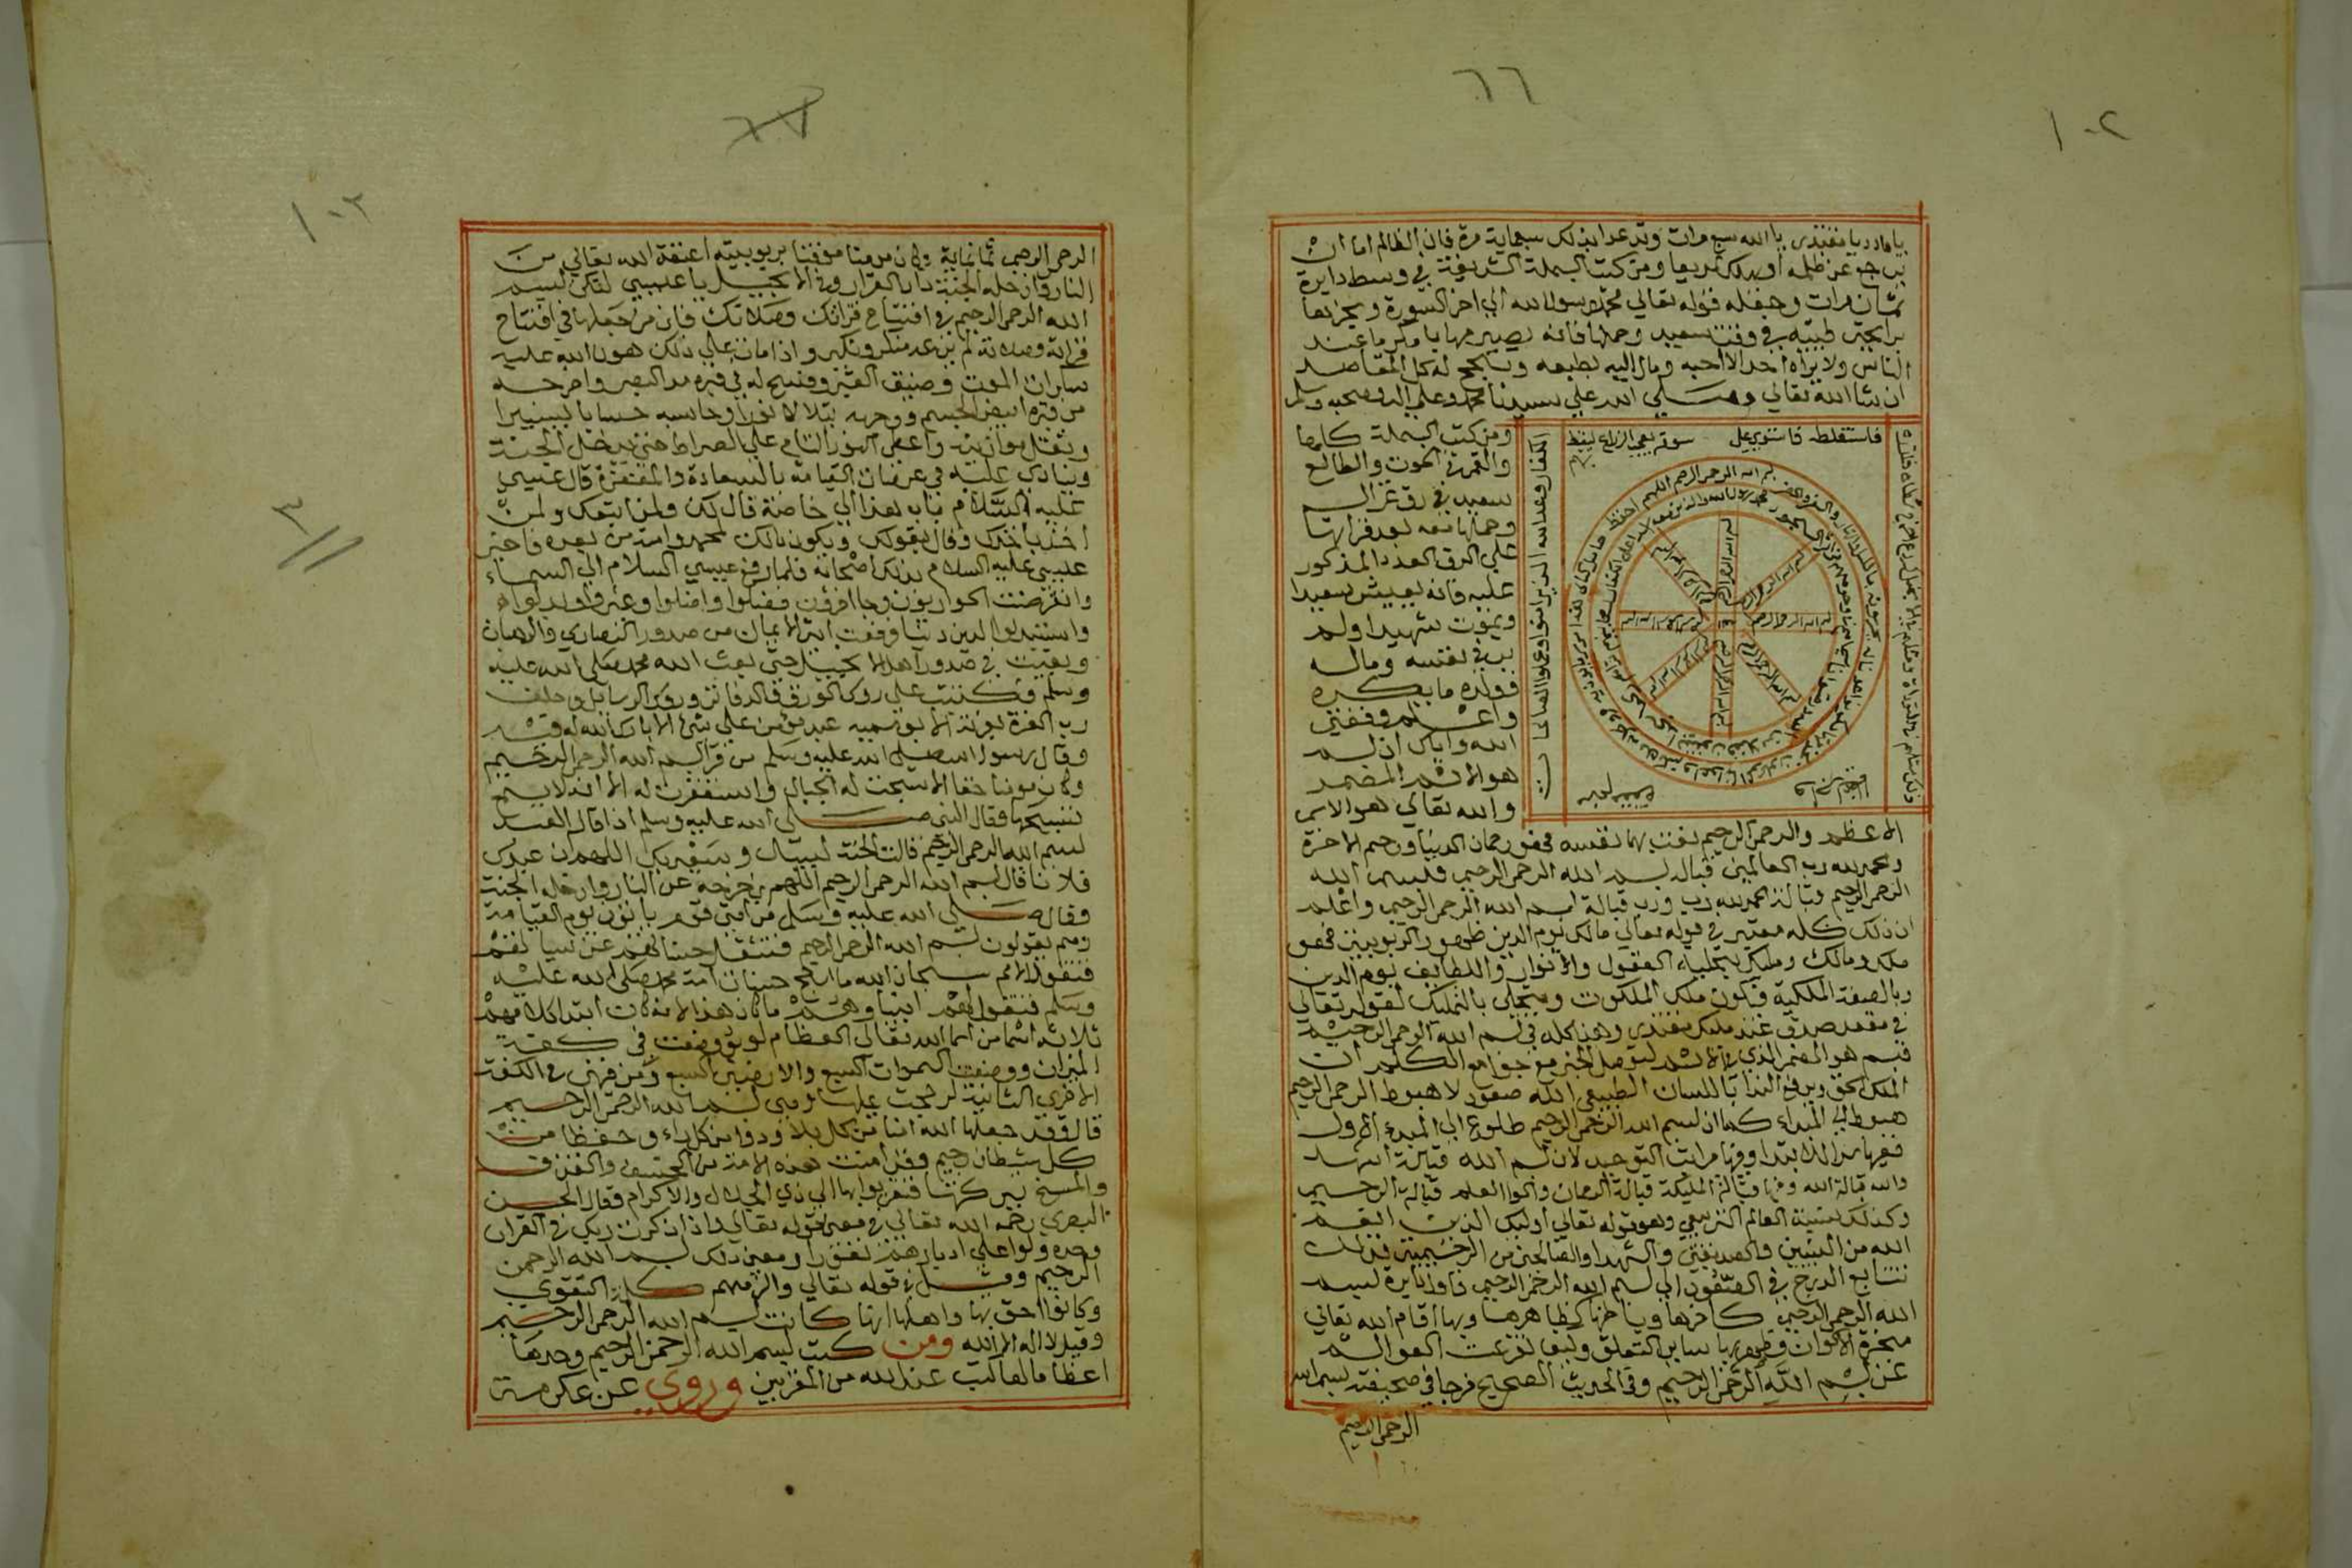 ٦٦
١٠٢
يا قادر يا مقتدر يا الله سبع مرات وتدعوا بذلك سبعماية مرة فان الظالم اما ان
يرجع عن ظلمه او يهلك سريعا ومن كتب البسملة الشريفة في وسط دايرة
ثمان مرات وحفظه قوله تعالي محمد رسول الله الي اخر السورة وبخرها
برايحة طيبه في وقت سعيد وحملها فانه يصير مهابا مكرما عند
الناس ولا يراه احد الا احبه ومال اليه بطبعه وتنجح له كل المقاصد
ان شا الله تعالي وصلي الله علي سيدنا محمد وعلي اله وصحبه وسلم
ومن كتب البسملة كامها
والقمر في الحوت والطالع
سعيد في رق غزال
وحملها معه بعد قراتها
علي الرق العدد المذكور
عليه فانه يعيش سعيدا
ويموت شهيدا ولم
ير في نفسه وماله
وولده ما يكره
واعلم وفقني
الله واياك ان بسم
هو الاسم المضمر
والله تعالي هو الاسم
فاستغلظ فاستوي علي سوقه يعجب الزراع ليغيظ بهم
الكفار وعد الله الذين امنوا وعملوا الصالحات
بسم الله الرحمن الرحيم اللهم احفظ حامل كتابي هذا
الاعظم والرحمن الرحيم نعت بهما نفسه فهو رحمان الدنيا ورحيم الاخرة
والحمد لله رب العالمين قبالة بسم الله الرحمن الرحيم فبسم الله
الرحمن الرحيم قبالة الحمد لله رب ورب قبالة بسم الله الرحمن الرحيم واعلم
ان ذلك كله معتبر في قوله تعالي مالك يوم الدين ظهور الربوبية فهو
ملك ومالك ومليك بتجلياء العقول والانوار واللطايف يوم الدين
وبالصفة الملكية فيكون ملك الملكوت ويتجلي بالتمليك لقوله تعالي
في مقعد صدق عند مليك مقتدر وهذا كله في بسم الله الرحمن الرحيم
فبسم هو المضمر الذي
الملك الحق ويرفع الندا باللسان الطبيعي الله صعود لا هبوط الرحمن الرحيم
هبوط الي المبداء كما ان بسم الله الرحمن الرحيم طلوع الي المبدء الاول
ففيها من الابتدا وفيها مراتب التوحيد لان بسم الله قبالة اشهد
والله قبالة الله وفيها قبالة المليكة قبالة الرحمان واولوا العلم قبالة الرحيم
وكذلك بنسبة العالم الترتيبي وهو قوله تعالي اوليك الذين انعم
الله من النبيين والصديقين والشهدا والصالحين من الرحيمية فذلك
تتابع الدرج في العتقون الي بسم الله الرحمن الرحيم فاول دايرة بسم
الله الرحمن الرحيم كاخرها وباطنها كظاهرها وبها اقام الله تعالي
شجرة الاكوان وظهر بها ساير التعلق وكيف تفرعت العوالم
عن بسم الله الرحمن الرحيم وفي الحديث الصحيح فرجا في صحيفته بسم الله
الرحمن الرحيم
١٠٣
الرحمن الرحيم ثمانماية وكان مومنا موقنا بربوبيته اعتقه الله تعالي من
النار وادخله الجنة دار القرار وفي الانجيل يا عيسي لتكن بسم
الله الرحمن الرحيم في افتتاح قراتك وصلاتك فان من جعلها في افتتاح
قراته وصلاته لم يرعه منكر ونكير واذا مات علي ذلك هون الله عليه
سكرات الموت وضيق القبر وفسح له في قبره مد البصر واخرجه
من قبره ابيض الجسم ووجهه يتلالا نورا وحاسبه حسابا يسيرا
وثقل موازينه واعطي النور التام علي الصراط حتي يدخل الجنة
وينادي عليه في عرصات القيامة بالسعادة والمغفرة قال عيسي
عليه السلام يا رب هذا لي خاصة قال لك ولمن اتبعك ولمن
اخذ باخذك وقال بقولك ويكون ذلك لمحمد وامته من بعده فاخبر
عيسي عليه السلام بذلك اصحابه فلما رفع عيسي السلام الي السماء
وانقرضت الحواريون وجا اخرون فضلوا واضلوا وغيروا وبدلوا
واستبدلوا الدين دنيا فرفعت اية الايمان من صدور النصاري والرهبان
وبقيت في صدور اهل الانجيل حتي بعث الله محمد صلي الله عليه
وسلم فكتبت علي روس السور في الدفاتر وروس الرسايل وحلف
رب العزة بعزته لا يسميه عبد مومن علي شي الا بارك الله له فيه
وقال رسول الله صلي الله عليه وسلم من قرا بسم الله الرحمن الرحيم
وكان مومنا حقا الا سبحت له الجبال واستغفرت له الا انه لا يسمع
تسبيحها فقال النبي صلي الله عليه وسلم اذا قال العبد
بسم الله الرحمن الرحيم قالت الجنة لبيك وسعديك اللهم ان عبدك
فلانا قال بسم الله الرحمن الرحيم اللهم زحزحه عن النار وادخله الجنة
وقال صلي الله عليه وسلم من امتي قوم ياتون يوم القيامة
وهم يقولون بسم الله الرحمن الرحيم فتثقل حسناتهم عن سياتهم
فتقول الامم سبحان الله ما ارجح حسنات امة محمد صلي الله عليه
وسلم فتقول لهم انبياوهم ما كان هذا الا انه كانت ابتدا كلامهم
ثلاثة اسما من اسما الله تعالي العظام لو وضعت في كفة
الميزان ووضعت السموات السبع والارضين السبع ومن فيهن في الكفة
الاخري الثانية لرجحت عليها وهي بسم الله الرحمن الرحيم
قال وقد جعلها الله امنا من كل بلاء ودوا من كل داء وحفظا من
كل شيطان رجيم وقد امنت هذه الامة من الخسف والغرق
والمسخ ببركتها فتقربوا بها الي ذي الجلال والاكرام فقال الحسن
البصري رحمه الله تعالي في معني قوله تعالي واذا ذكرت ربك في القران
وحده ولوا علي ادبارهم نفورا ومعني ذلك بسم الله الرحمن
الرحيم وقيل في قوله تعالي والزمهم كلمة التقوي
وكانوا احق بها واهلها انها كانت بسم الله الرحمن الرحيم
وقيل لا اله الا الله ومن كتب بسم الله الرحمن الرحيم وحدها
اعظاما لها كتب عند الله من المقربين وروي عن عكرمة
٣